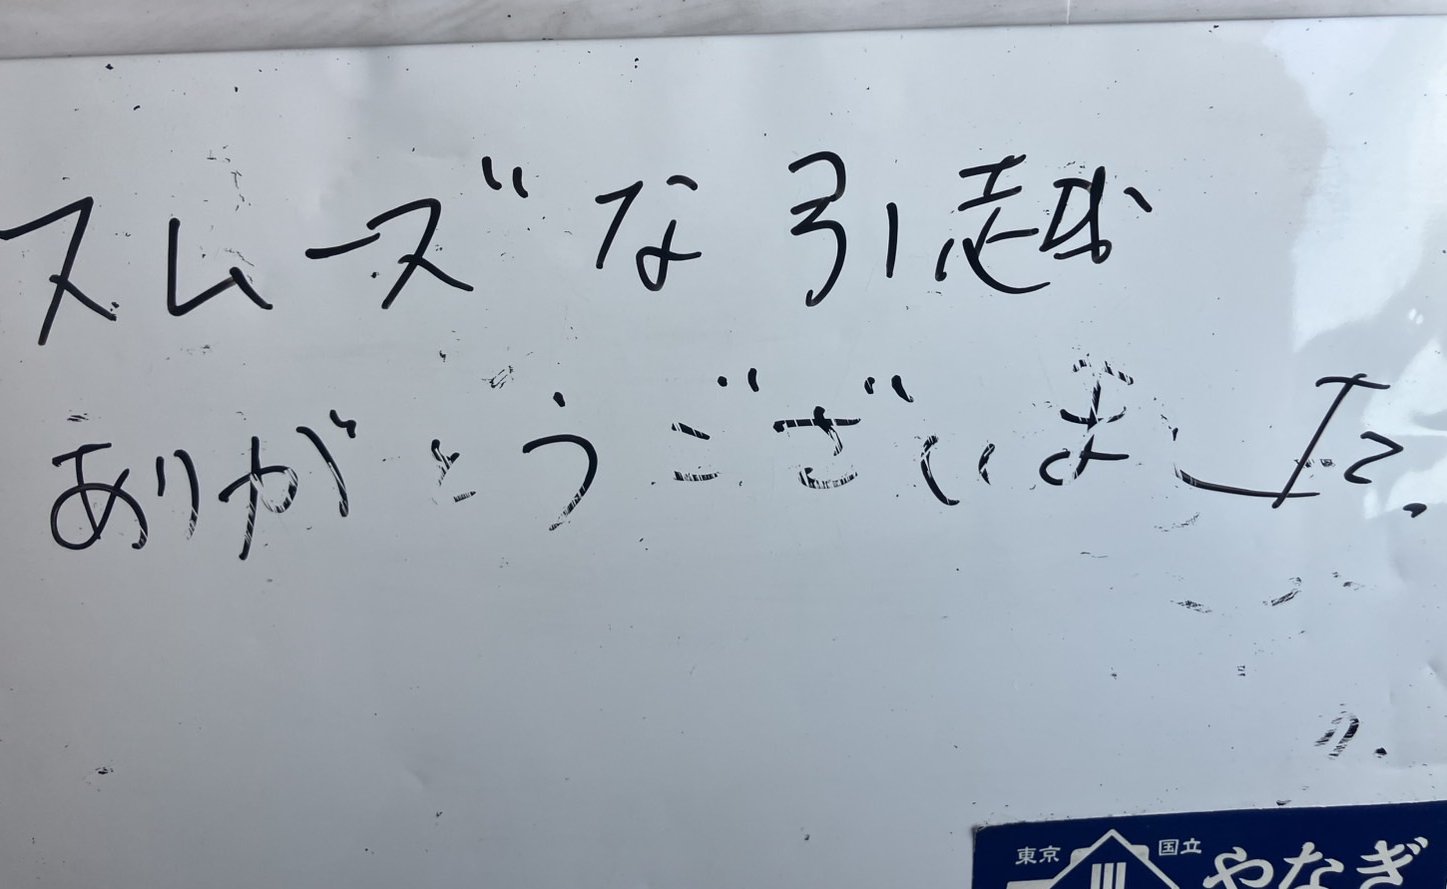 スムーズな引越
ありがとうございました.
東京 国立 やなぎ